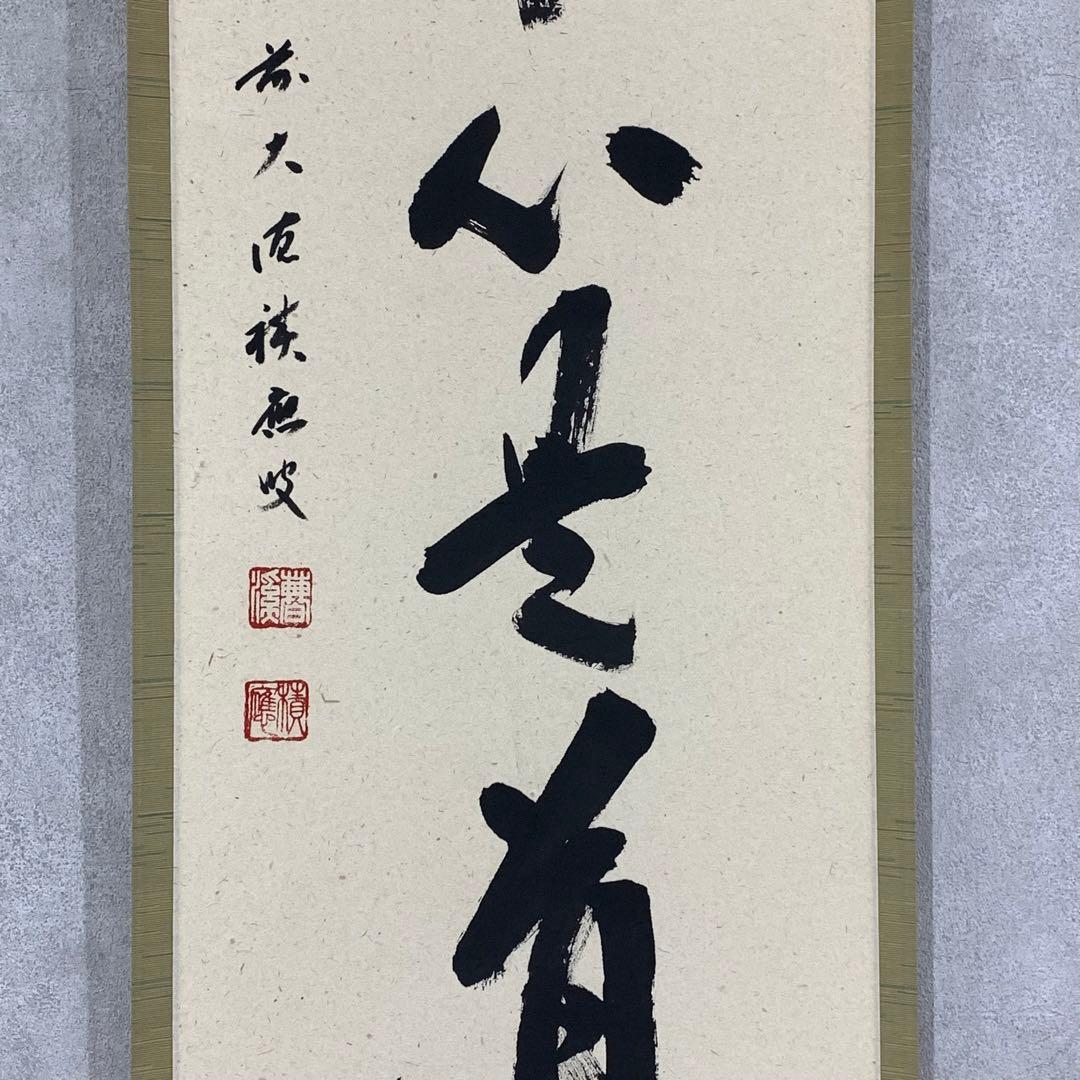 心是道
前大徳積應叟
積應